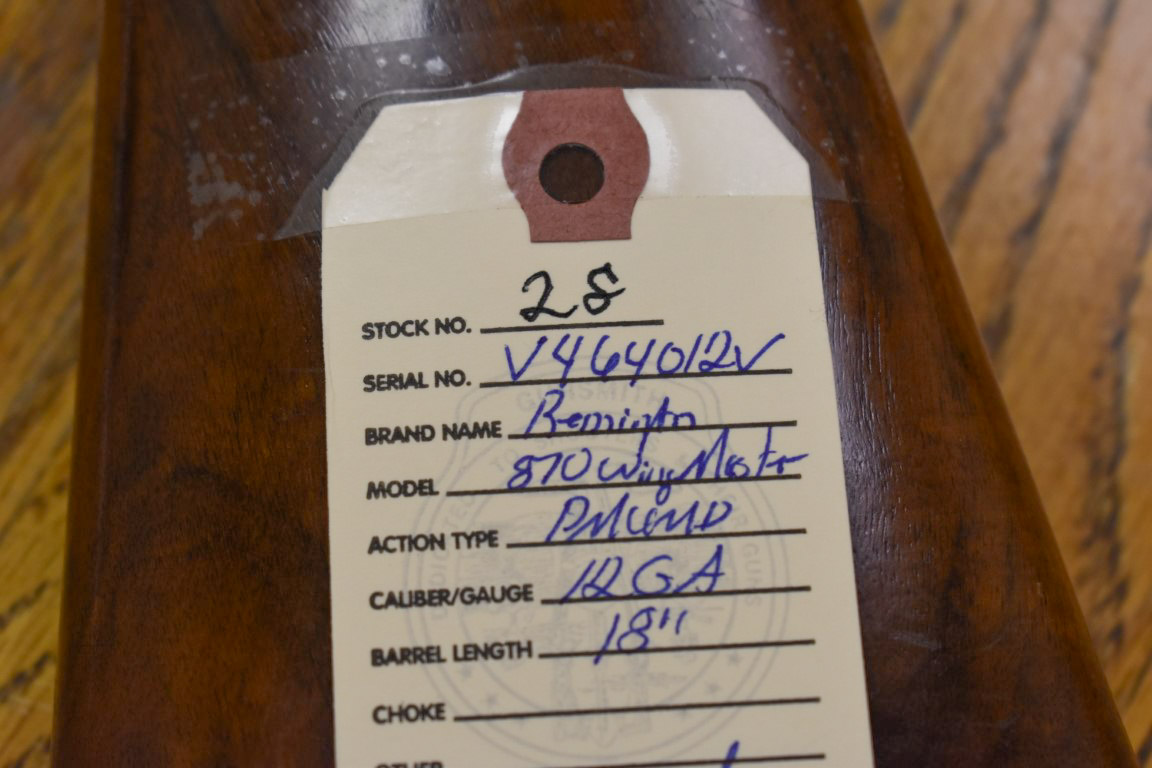 STOCK NO. 28
SERIAL NO. V464012V
BRAND NAME Remington
MODEL 870 WingMaster
ACTION TYPE
CALIBER/GAUGE 12 GA
BARREL LENGTH 18"
CHOKE
OTHER